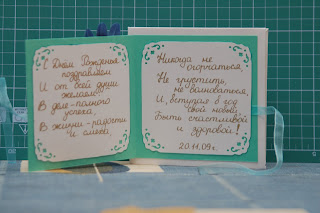 С Днём Рожденья
поздравляем
И от всей души
желаем:
В деле - полного
успеха,
В жизни - радости
и смеха,
Никогда не
огорчаться,
Не грустить,
не волноваться,
И, вступая в год
свой новый,
Быть счастливой
и здоровой!
20.11.09г.